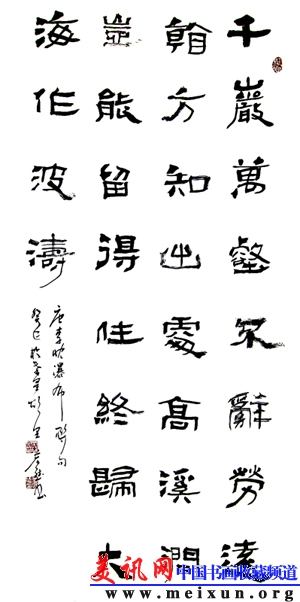 千巖萬壑不辭勞遠
看方知出處高溪澗
豈能留得住終歸大
海作波濤
唐李忱瀑布聯句
癸巳於
美讯网 中国书画收藏频道
www.meixun.org